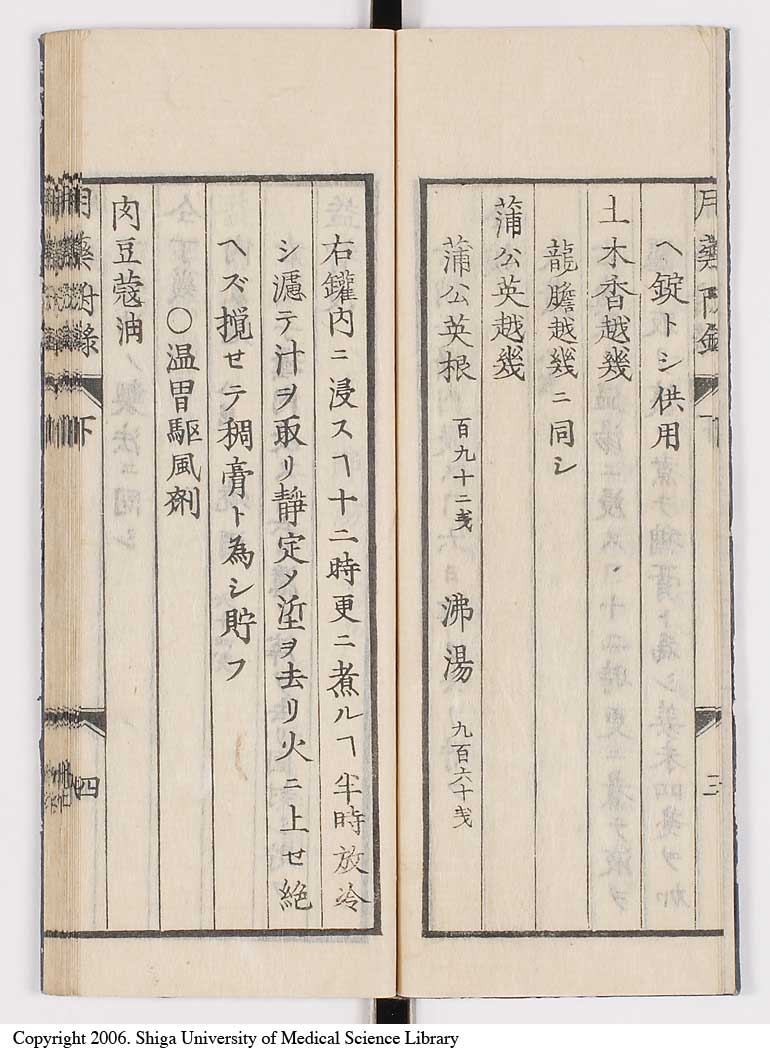 ヘ錠トシ供用
土木香越幾
龍膽越幾ニ同シ
蒲公英越幾
蒲公英根 百九十二戔 沸湯 九百六十戔
右鑵内ニ浸スヿ十二時更ニ煮ルヿ半時放冷
シ濾テ汁ヲ取リ靜定メ𡉏ヲ去リ火ニ上セ絶
ヘズ攪セテ稠膏ト為シ貯フ
○温胃駆風剤
肉豆蔲油
附錄 下 四
Copyright 2006. Shiga University of Medical Science Library